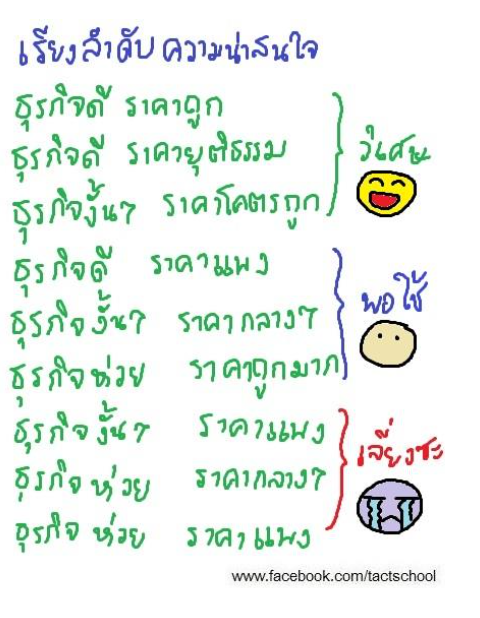 เรียงลำดับความน่าสนใจ
ธุรกิจดี ราคาถูก
ธุรกิจดี ราคายุติธรรม
ธุรกิจงั้นๆ ราคาโคตรถูก
วิเศษ
ธุรกิจดี ราคาแพง
ธุรกิจงั้นๆ ราคากลางๆ
ธุรกิจห่วย ราคาถูกมาก
พอใช้
ธุรกิจงั้นๆ ราคาแพง
ธุรกิจห่วย ราคากลางๆ
ธุรกิจห่วย ราคาแพง
เลี่ยงซะ
www.facebook.com/tactschool